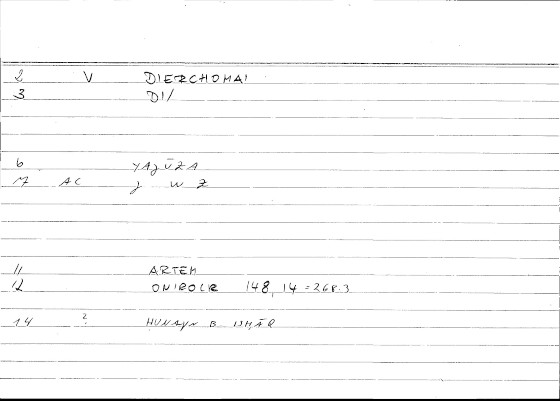 2 V DIERCHOMAI
3 DI/
6 YAJŪZA
7 AC J W Z
11 ARTEM
12 ONIROCR 148, 14 = 268.3
14 ? HUNAYN B ISHĀQ